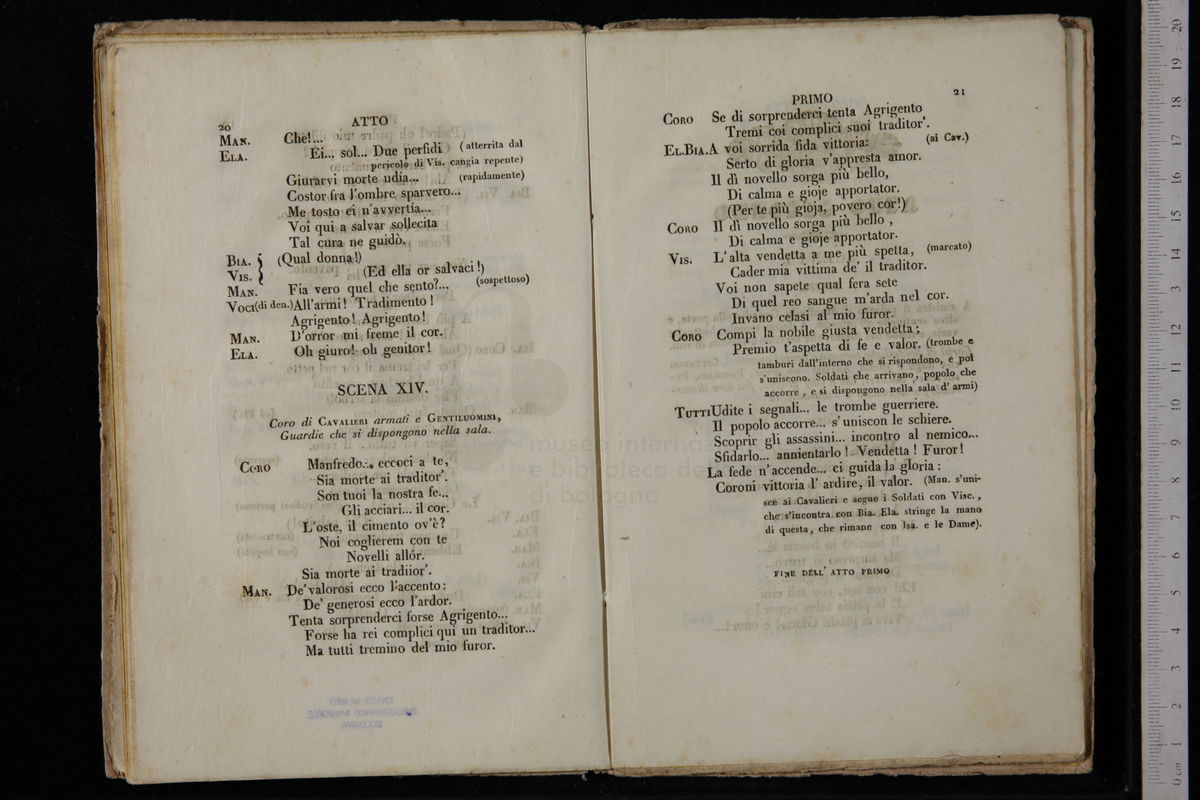 20
ATTO
MAN. Che!...
ELA. Ei... sol... Due perfidi (atterrita dal
pericolo di Vis. cangia repente)
Giurarvi morte udia... (rapidamente)
Costor fra l'ombre sparvero...
Me tosto ei n'avvertía...
Voi qui a salvar sollecita
Tal cura ne guidò.
BIA. (Qual donna!)
VIS. (Ed ella or salvaci!)
MAN. Fia vero quel che sento?... (sospettoso)
VOCI (di den.) All'armi! Tradimento!
Agrigento! Agrigento!
MAN. D'orror mi freme il cor.
ELA. Oh giuro! oh genitor!
SCENA XIV.
Coro di CAVALIERI armati e GENTILUOMINI,
Guardie che si dispongono nella sala.
CORO Manfredo... eccoci a te,
Sia morte ai traditor'.
Son tuoi la nostra fe...
Gli acciari... il cor.
L'oste, il cimento ov'è?
Noi coglierem con te
Novelli allór.
Sia morte ai tradiior'.
MAN. De' valorosi ecco l'accento:
De' generosi ecco l'ardor.
Tenta sorprenderci forse Agrigento...
Forse ha rei complici qui un traditor...
Ma tutti tremino del mio furor.
PRIMO
21
CORO Se di sorprenderci tenta Agrigento,
Tremi coi complici suoi traditor'.
EL.BIA. A voi sorrida fida vittoria: (ai Cav.)
Serto di gloria v'appresta amor.
Il dì novello sorga più bello,
Di calma e gioje apportator.
(Per te più gioja, povero cor!)
CORO Il dì novello sorga più bello,
Di calma e gioje apportator.
VIS. L'alta vendetta a me più spetta, (marcato)
Cader mia vittima de' il traditor.
Voi non sapete qual fera sete
Di quel reo sangue m'arda nel cor.
Invano celasi al mio furor.
CORO Compi la nobile giusta vendetta;
Premio t'aspetta di fe e valor. (trombe e
tamburi dall'interno che si rispondono, e poi
s'uniscono. Soldati che arrivano, popolo che
accorre, e si dispongono nella sala d'armi)
TUTTI Udite i segnali... le trombe guerriere.
Il popolo accorre... s'uniscon le schiere.
Scoprir gli assassini... incontro al nemico...
Sfidarlo... annientarlo! Vendetta! Furor!
La fede n'accende... ci guida la gloria:
Coroni vittoria l'ardire, il valor. (Man. s'uni-
sce ai Cavalieri e segue i Soldati con Visc.,
che s'incontra con Bia. Ela. stringe la mano
di questa, che rimane con Isa. e le Dame).
FINE DELL' ATTO PRIMO